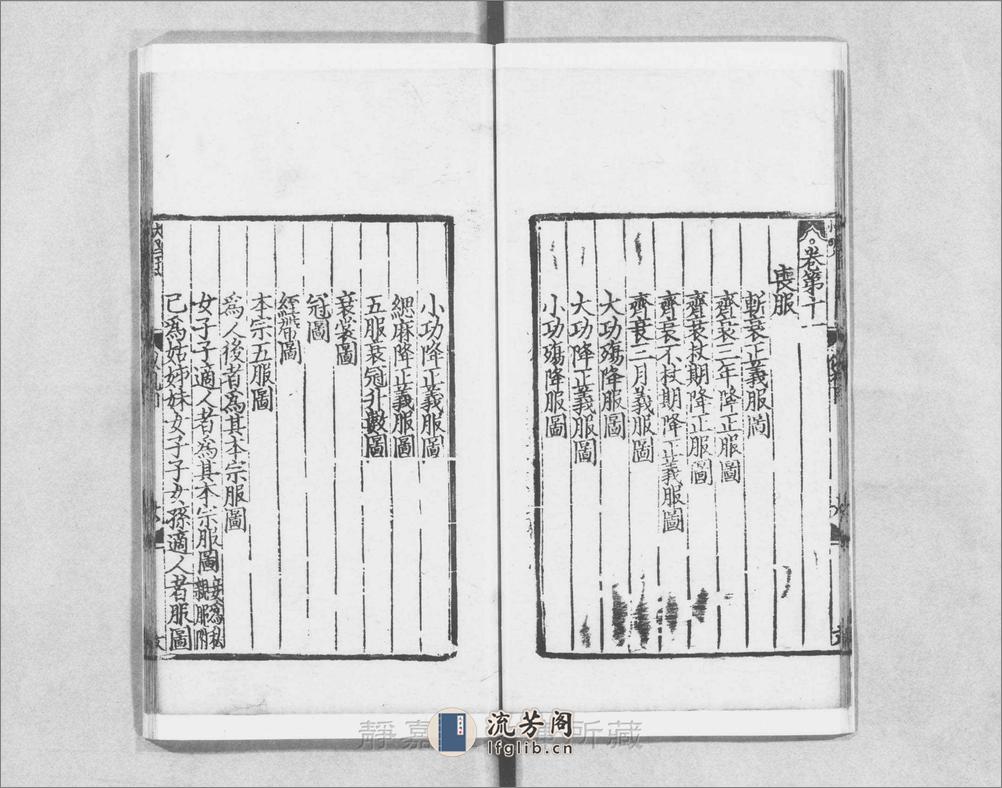 卷第十一
喪服
斬衰正義服圖
齊衰三年降正服圖
齊衰杖期降正服圖
齊衰不杖期降正義服圖
齊衰三月義服圖
大功殤降服圖
大功降正義服圖
小功殤降服圖
小功降正義服圖
緦麻降正義服圖
五服衰冠升數圖
衰裳圖
冠圖
絰帶圖
本宗五服圖
為人後者為其本宗服圖
女子子適人者為其本宗服圖 妾為私親服附
己為姑姊妹女子子女孫適人者服圖
靜嘉 所藏
流芳阁
lfglib.cn